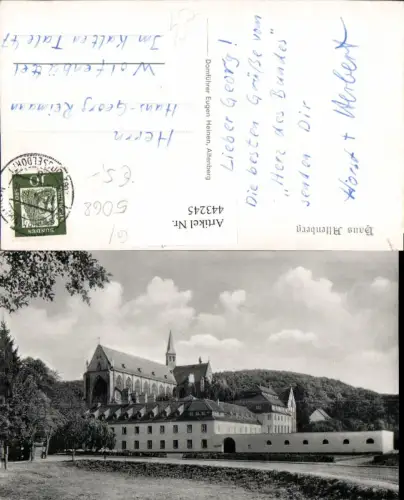 Lieber Georg!
Die besten Grüße vom
"Herz des Bundes"
senden Dir
Horst + Herbert
Haus Altenberg
Domführer Eugen Heinen, Altenberg
Herrn
Hans-Georg Reimann
Wolfenbüttel
Im Kalten Tale 47
Artikel Nr.
443245
5068
€ 5,-
10